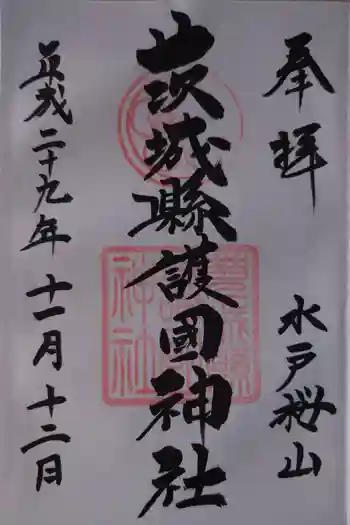 奉拝
水戸桜山
茨城縣護國神社
平成二十九年十一月十二日